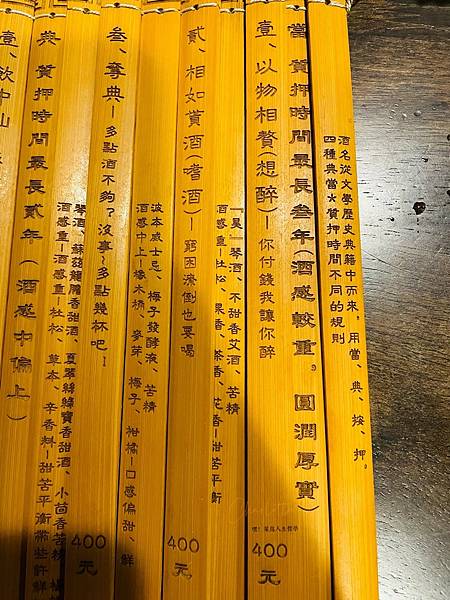 酒名從文學歷史典籍中而來，用當、典、按、押。
四種典當*質押時間不同的規則
當 質押時間最長叁年（酒感較重。圓潤厚實）
壹、以物相贅（想醉）—你付錢我讓你醉
400
元
「臭」琴酒、不甜香艾酒、苦精
酒感重—杜松、果香、茶香、花香—甜苦平衡
貳、相如貰酒（嗜酒）—窮困潦倒也要喝
400
元
波本威士忌、梅子發酵液、苦精
酒感中上—橡木桶、麥芽、梅子、柑橘—口感偏甜、鮮
叁、奪典—多點酒不夠？沒事~多點幾杯吧~
400
元
琴酒、蘇茲龍膽香甜酒、夏翠絲綠寶香甜酒、小茴香苦精
酒感重—酒感重—杜松、草本、辛香料—甜苦平衡帶些許鮮
典 質押時間最長貳年（酒感中偏上）
壹、飲中